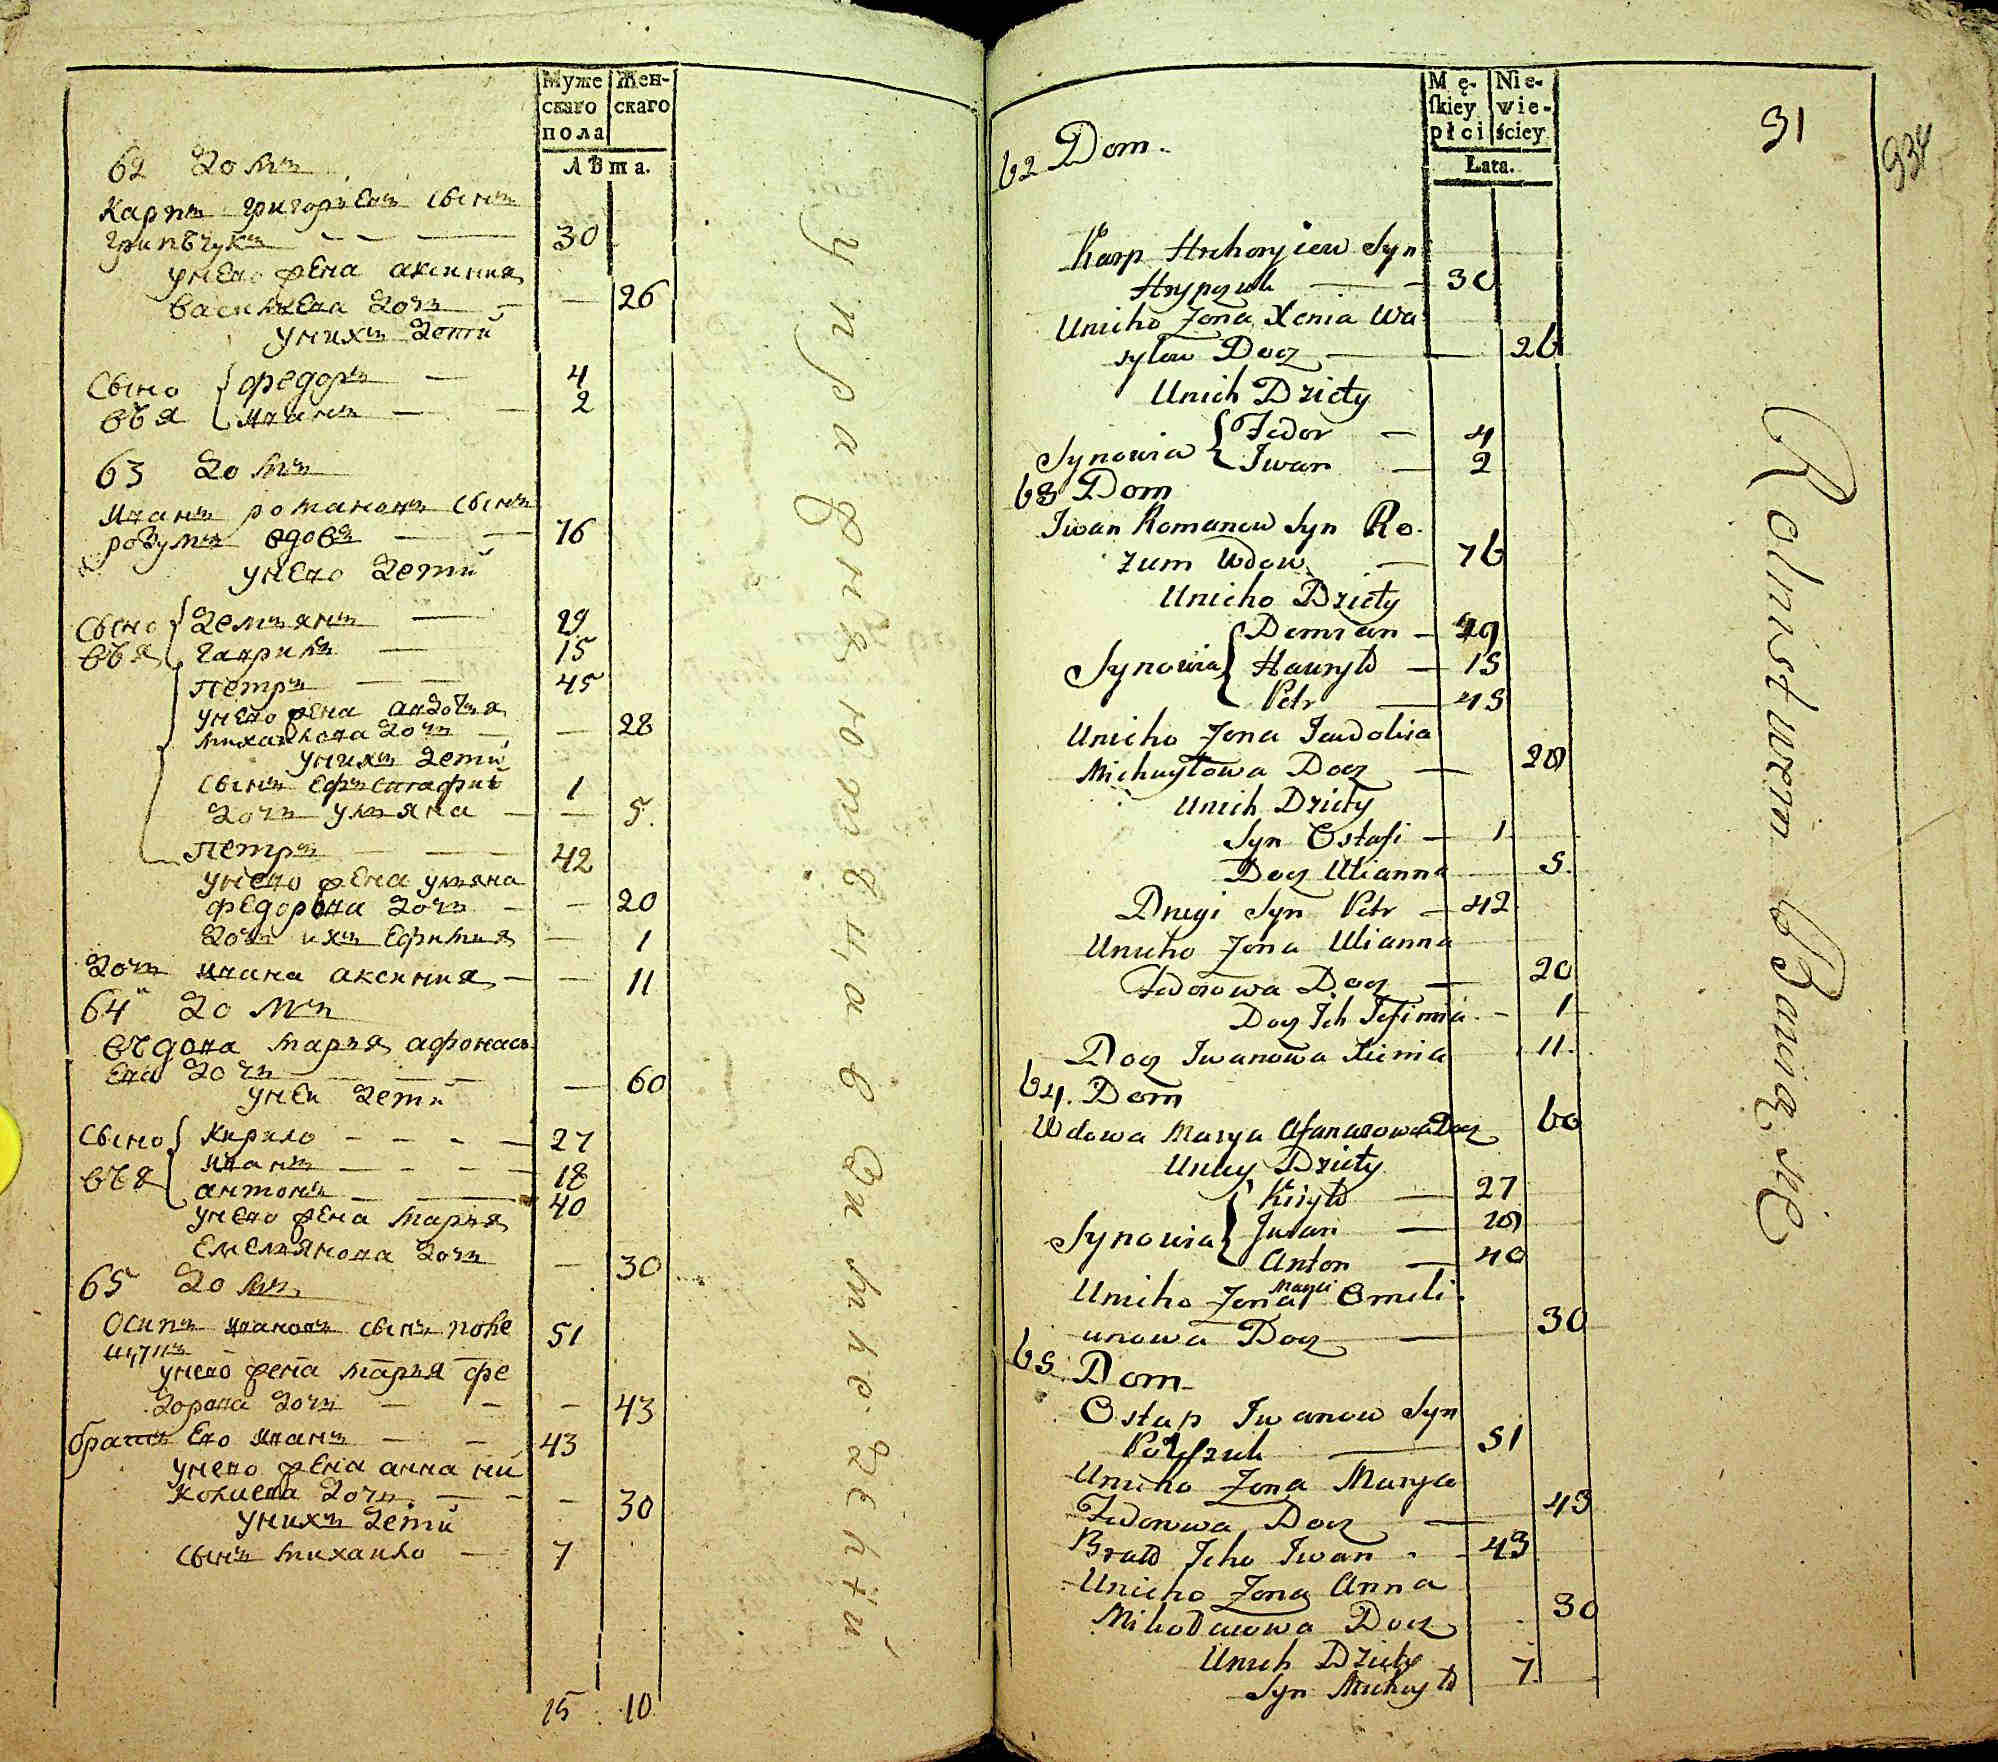 Муже Жен-
скаго скаго
пола
Лѣта.
62 Домъ
Карпъ григорьевъ сынъ
грипъчукъ 30
унево жена аксиния
васильева дочь 26
унихъ дети
Сыно федоръ 4
въя иванъ 2
63 Домъ
Иванъ романовъ сынъ
розумъ вдовъ 76
унево дети
Сыно демьянъ 29
въя гаврила 15
петръ 45
унево жена авдотья
михайлова дочь 28
унихъ дети
сынъ 1
дочь ульяна 5
петръ 42
унево жена ульяна
федорова дочь 20
дочь ихъ Ефимия 1
дочь ивана аксиния 11
64 Домъ
въдова марья афонась
ева дочь 60
унеи дети
Сыно кирило 27
въя иванъ 18
антонъ 40
унево жена марья
Емельянова дочь 30
65 Домъ
Осипъ ивановъ сынъ поле
щукъ 51
унево жена марья фе
дорова дочь 43
братъ Ево иванъ 43
унево жена анна ни
колаева дочь 30
унихъ дети
сынъ михаило 7
15 10
упражняющаѣ в Оитке дѣнти
Mę- Nie-
ſkiey wie-
płci ściey
Łata.
31
934
62 Dom.
Karp Hrehoryiew Syn
Hrypczuk 30
Unieho Zona Xenia Wa
sylew Docz 26
Unich Dziety
Synowia Fedor 4
Iwan 2
63 Dom
Iwan Romanow Syn Ro
zum Wdow 76
Unieho Dziety
Demian 29
Synowia Hauryło 15
Petr 45
Unieho Zona Jewdokia
Michayłowa Docz 28
Unich Dziety
Syn Ostafi 1
Docz Ulianna 5
Drugi Syn Petr 42
Unieho Zona Ulianna
Fedorowa Docz 20
Docz Ich Jefimia 1
Docz Iwanowa Xienia 11
64. Dom
Wdowa Marya Afanasowa Docz 60
Uniey Dziety
Kiryło 27
Synowia Iwan 18
Anton 40
Unieho Zona Maryi Omeli
anowa Docz 30
65 Dom
Ostap Iwanow Syn
Poleszuk 51
Unieho Zona Marya
Fedorowa Docz 43
Brat Jeho Iwan 43
Unieho Zona Anna
Mikołaiowa Docz 30
Unich Dziety
Syn Michayło 7
Rolnistwem Bawią Się